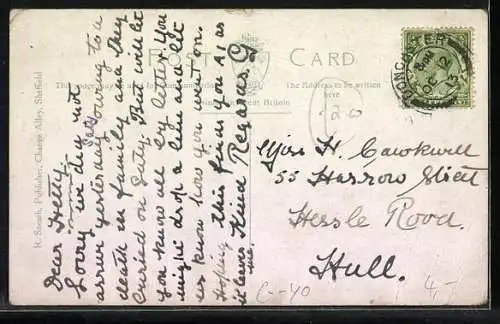 POST CARD
The Address to be written here
R. Sneath, Publisher, Change Alley, Sheffield
DONCASTER
OC 12
13
Dear Nelly,
Sorry we dig not
arrive yesterday Saty owing to a
death in family and they
buried on Saty. But will let
you know all ey letter. You
might drop a line and let
us know how you went on.
Hoping this finds you A1 as
it leaves me. Kind Regards. G
Miss H. Cawkwell
55 Harrow Street
Hessle Road.
Hull.
4,-